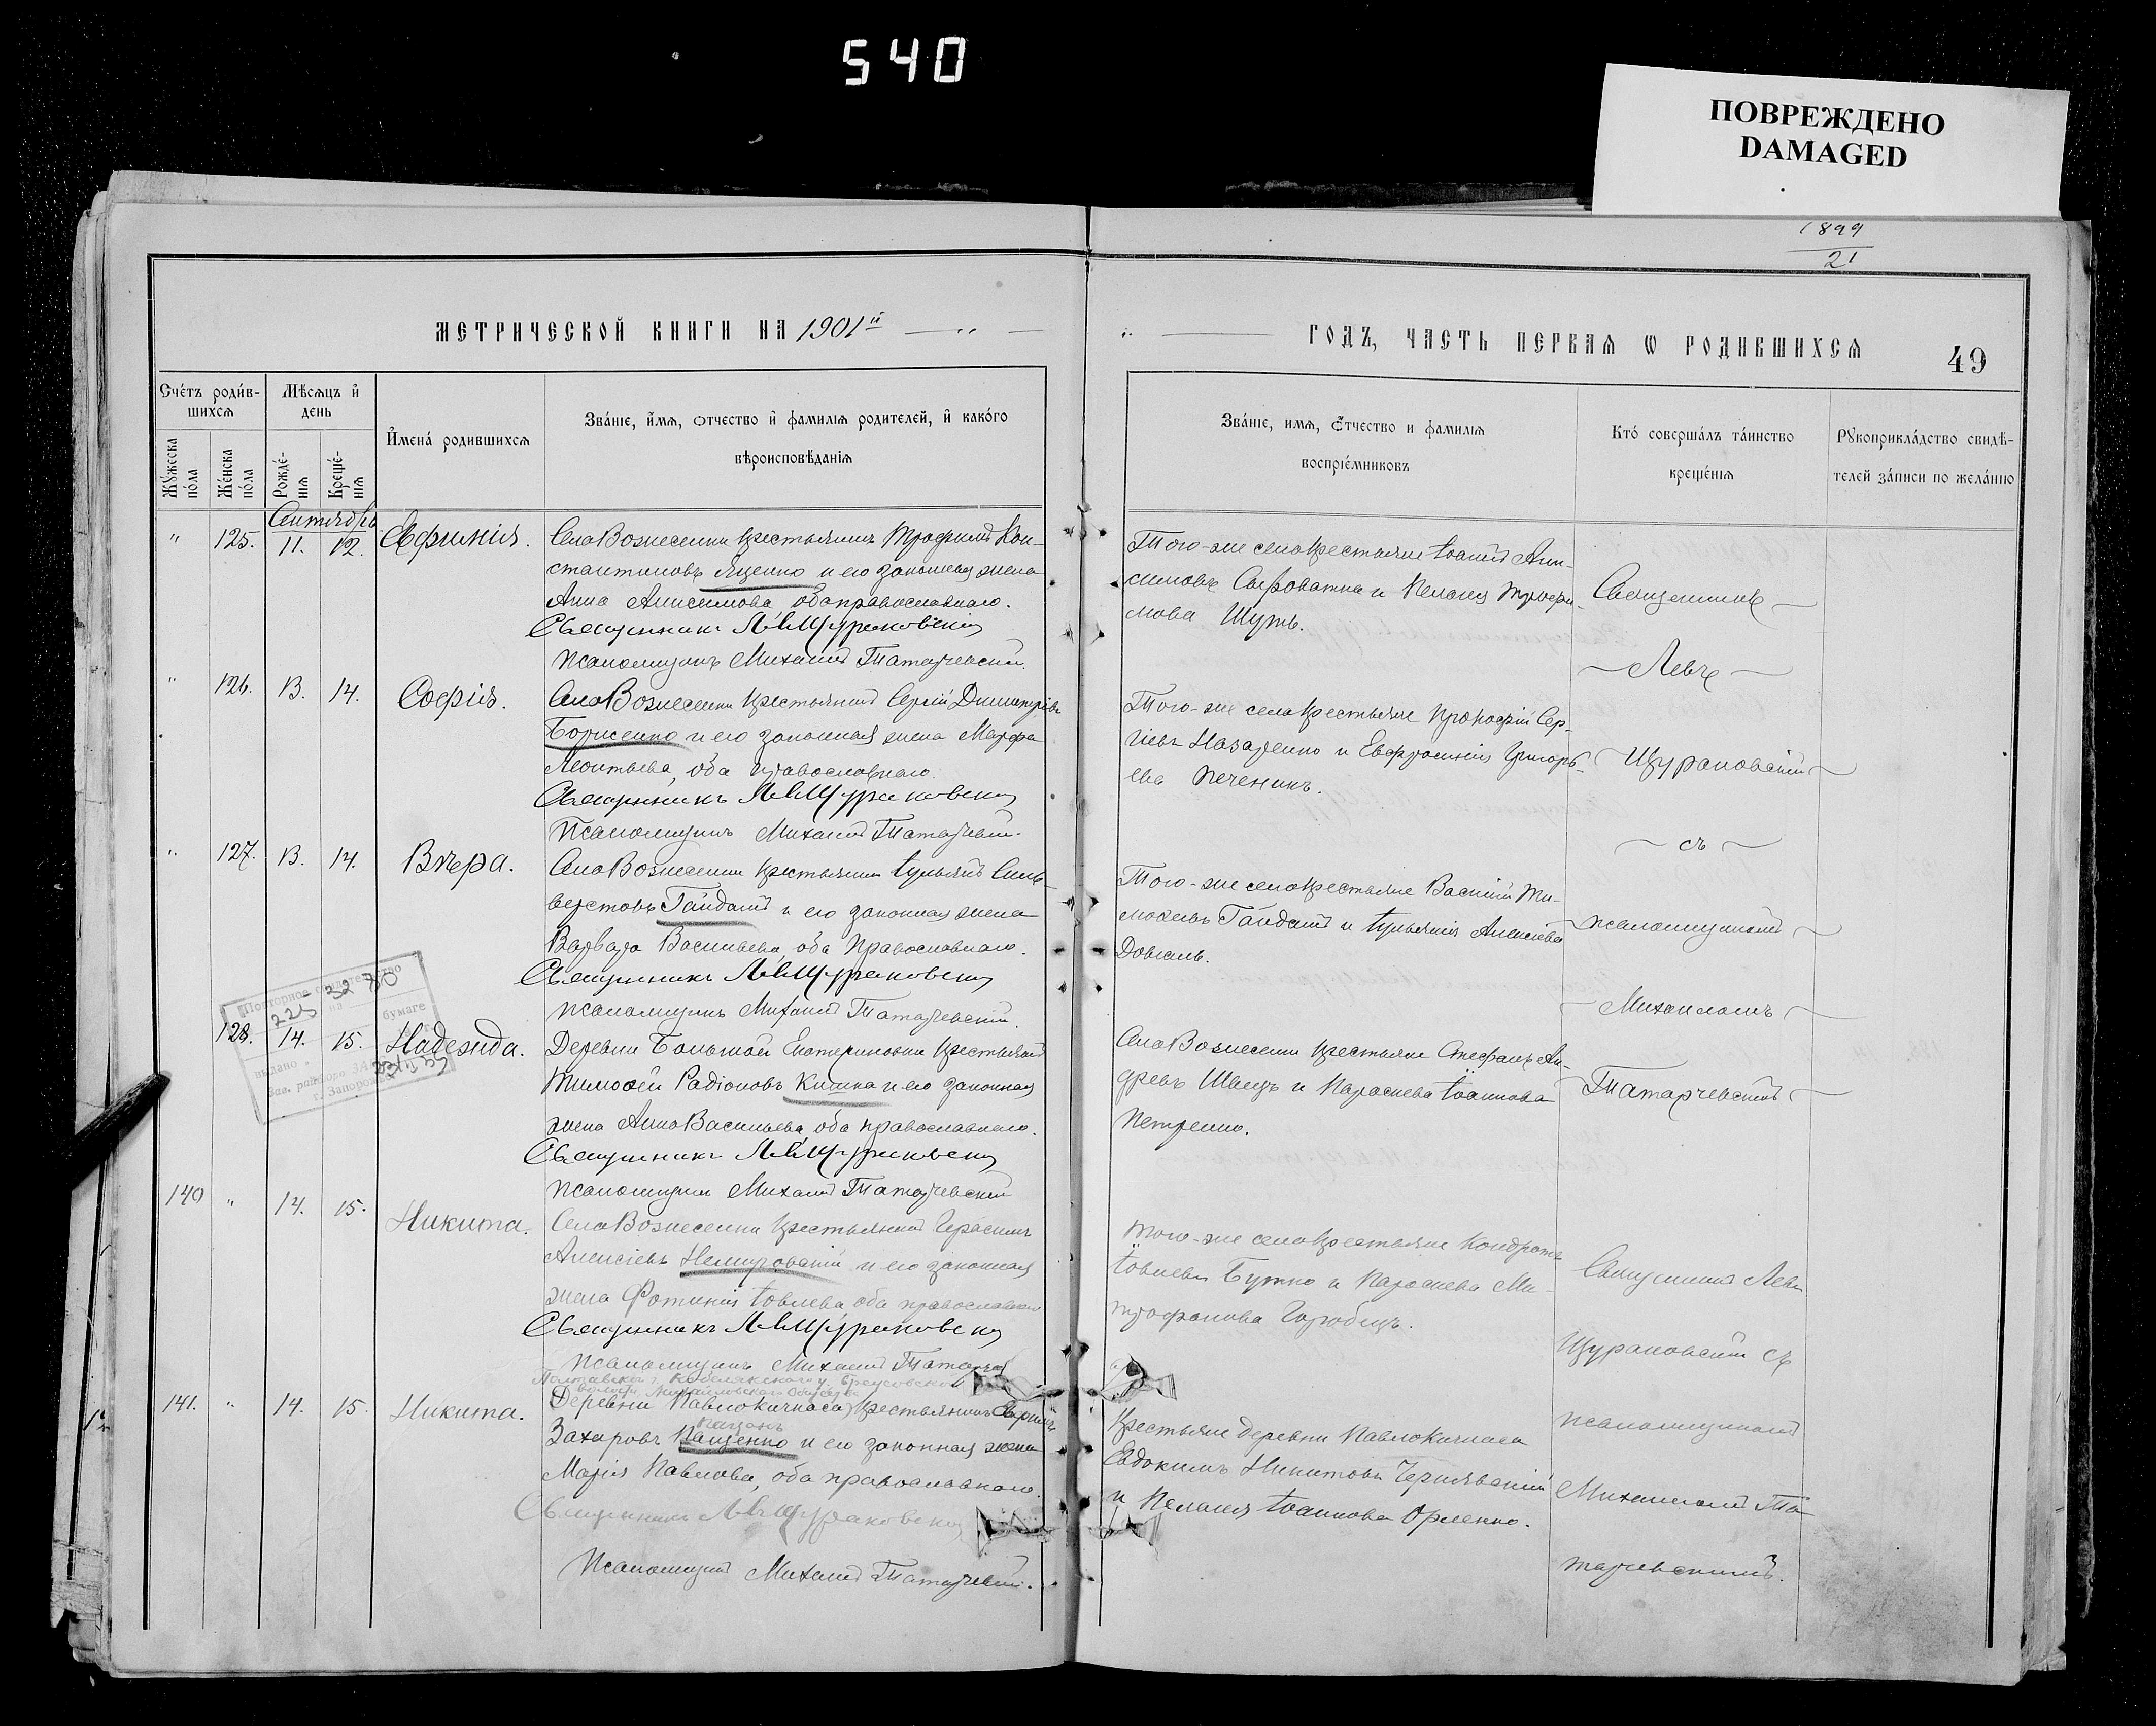 540
ПОВРЕЖДЕНО
DAMAGED
1899
21
МЕТРИЧЕСКОЙ КНИГИ НА 1901й
ГОДЪ, ЧАСТЬ ПЕРВАЯ Ѡ РОДИВШИХСЯ
49
Счéтъ родив-
шихся
Мѣсяцъ и
день
Мужеска
пола
Женска
пола
Рождé-
нія
Крещé-
нія
Именá родившихся
Звáніе, имя, отчество и фамилія родителей, и какóго
вѣроисповѣданія
Звáніе, имя, отчество и фамилія
воспріéмниковъ
Ктó совершáлъ тáинство
крещéнія
Рукоприклáдство свидѣ-
телей зáписи по желáнію
Сентябрь
" 125. 11. 12. Евфимія.
Села Вознесенки крестьянинъ Трофимъ Кон-
стантиновъ Яценко и его законная жена
Анна Анисимова, оба православнаго.
Священникъ Л. Щураковскій
Псаломщикъ Михаилъ Татарчевскій.
Того-же села крестьяне Іоаннъ Ани-
симовъ Сыроватка и Пелагія Трофи-
мова Шуть.
Священникъ
Левъ
" 126. 13. 14. Софія.
Села Вознесенки крестьянинъ Сергій Димитріевъ
Борисенко и его законная жена Марфа
Леонтьева, оба православнаго.
Священникъ Л. Щураковскій
Псаломщикъ Михаилъ Татарчевскій.
Того-же села крестьяне Прокофій Сер-
гіевъ Назаренко и Евфросинія Григорь-
ева Печеникъ.
Щураковскій
съ
" 127. 13. 14. Вѣра.
Села Вознесенки крестьянинъ Іуліанъ Силь-
верстовъ Гайдашъ и его законная жена
Варвара Васильева, оба Православнаго.
Священникъ Л. Щураковскій
Псаломщикъ Михаилъ Татарчевскій.
Того-же села крестьяне Василій Ти-
моѳеевъ Гайдашъ и Іуліанія Алексіева
Довгаль.
псаломщикомъ
Михаиломъ
Повторное свидетельство
на бумаге
выдано
г. Запорожье
128. 14. 15. Надежда.
Деревни Большой Екатериновки крестьянинъ
Тимоѳей Радіоновъ Кишка и его законная
жена Анна Васильева, оба православнаго.
Священникъ Л. Щураковскій
Псаломщикъ Михаилъ Татарчевскій
Села Вознесенки крестьяне Стефанъ Ан-
дреевъ Швецъ и Параскева Іоаннова
Петренко.
Татарчевскимъ
140 " 14. 15. Никита.
Села Вознесенки крестьянинъ Герасимъ
Алексіевъ Немировскій и его законная
жена Фотинія Іовлева, оба православнаго
Священникъ Л. Щураковскій
Псаломщикъ Михаилъ Татарчев
Того-же села крестьяне Кондратъ
Іовлевъ Бутко и Параскева Ми-
трофанова Горобецъ.
Священникъ Левъ
Щураковскій съ
141. " 14. 15. Никита.
Полтавской г. Кобелякскаго у. Бреусовской
волости, Михайловскаго общества
Деревни Павлокичкаса крестьянинъ
Захаровъ Пащенко и его законная жена
Марія Павлова, оба православнаго.
Священникъ Л. Щураковскій
Псаломщикъ Михаилъ Татарчевскій.
Крестьяне деревни Павлокичкаса
Евдокимъ Никитовъ Чернявскій
и Пелагія Іоаннова Орленко.
псаломщикомъ
Михаиломъ Та-
тарчевскимъ.